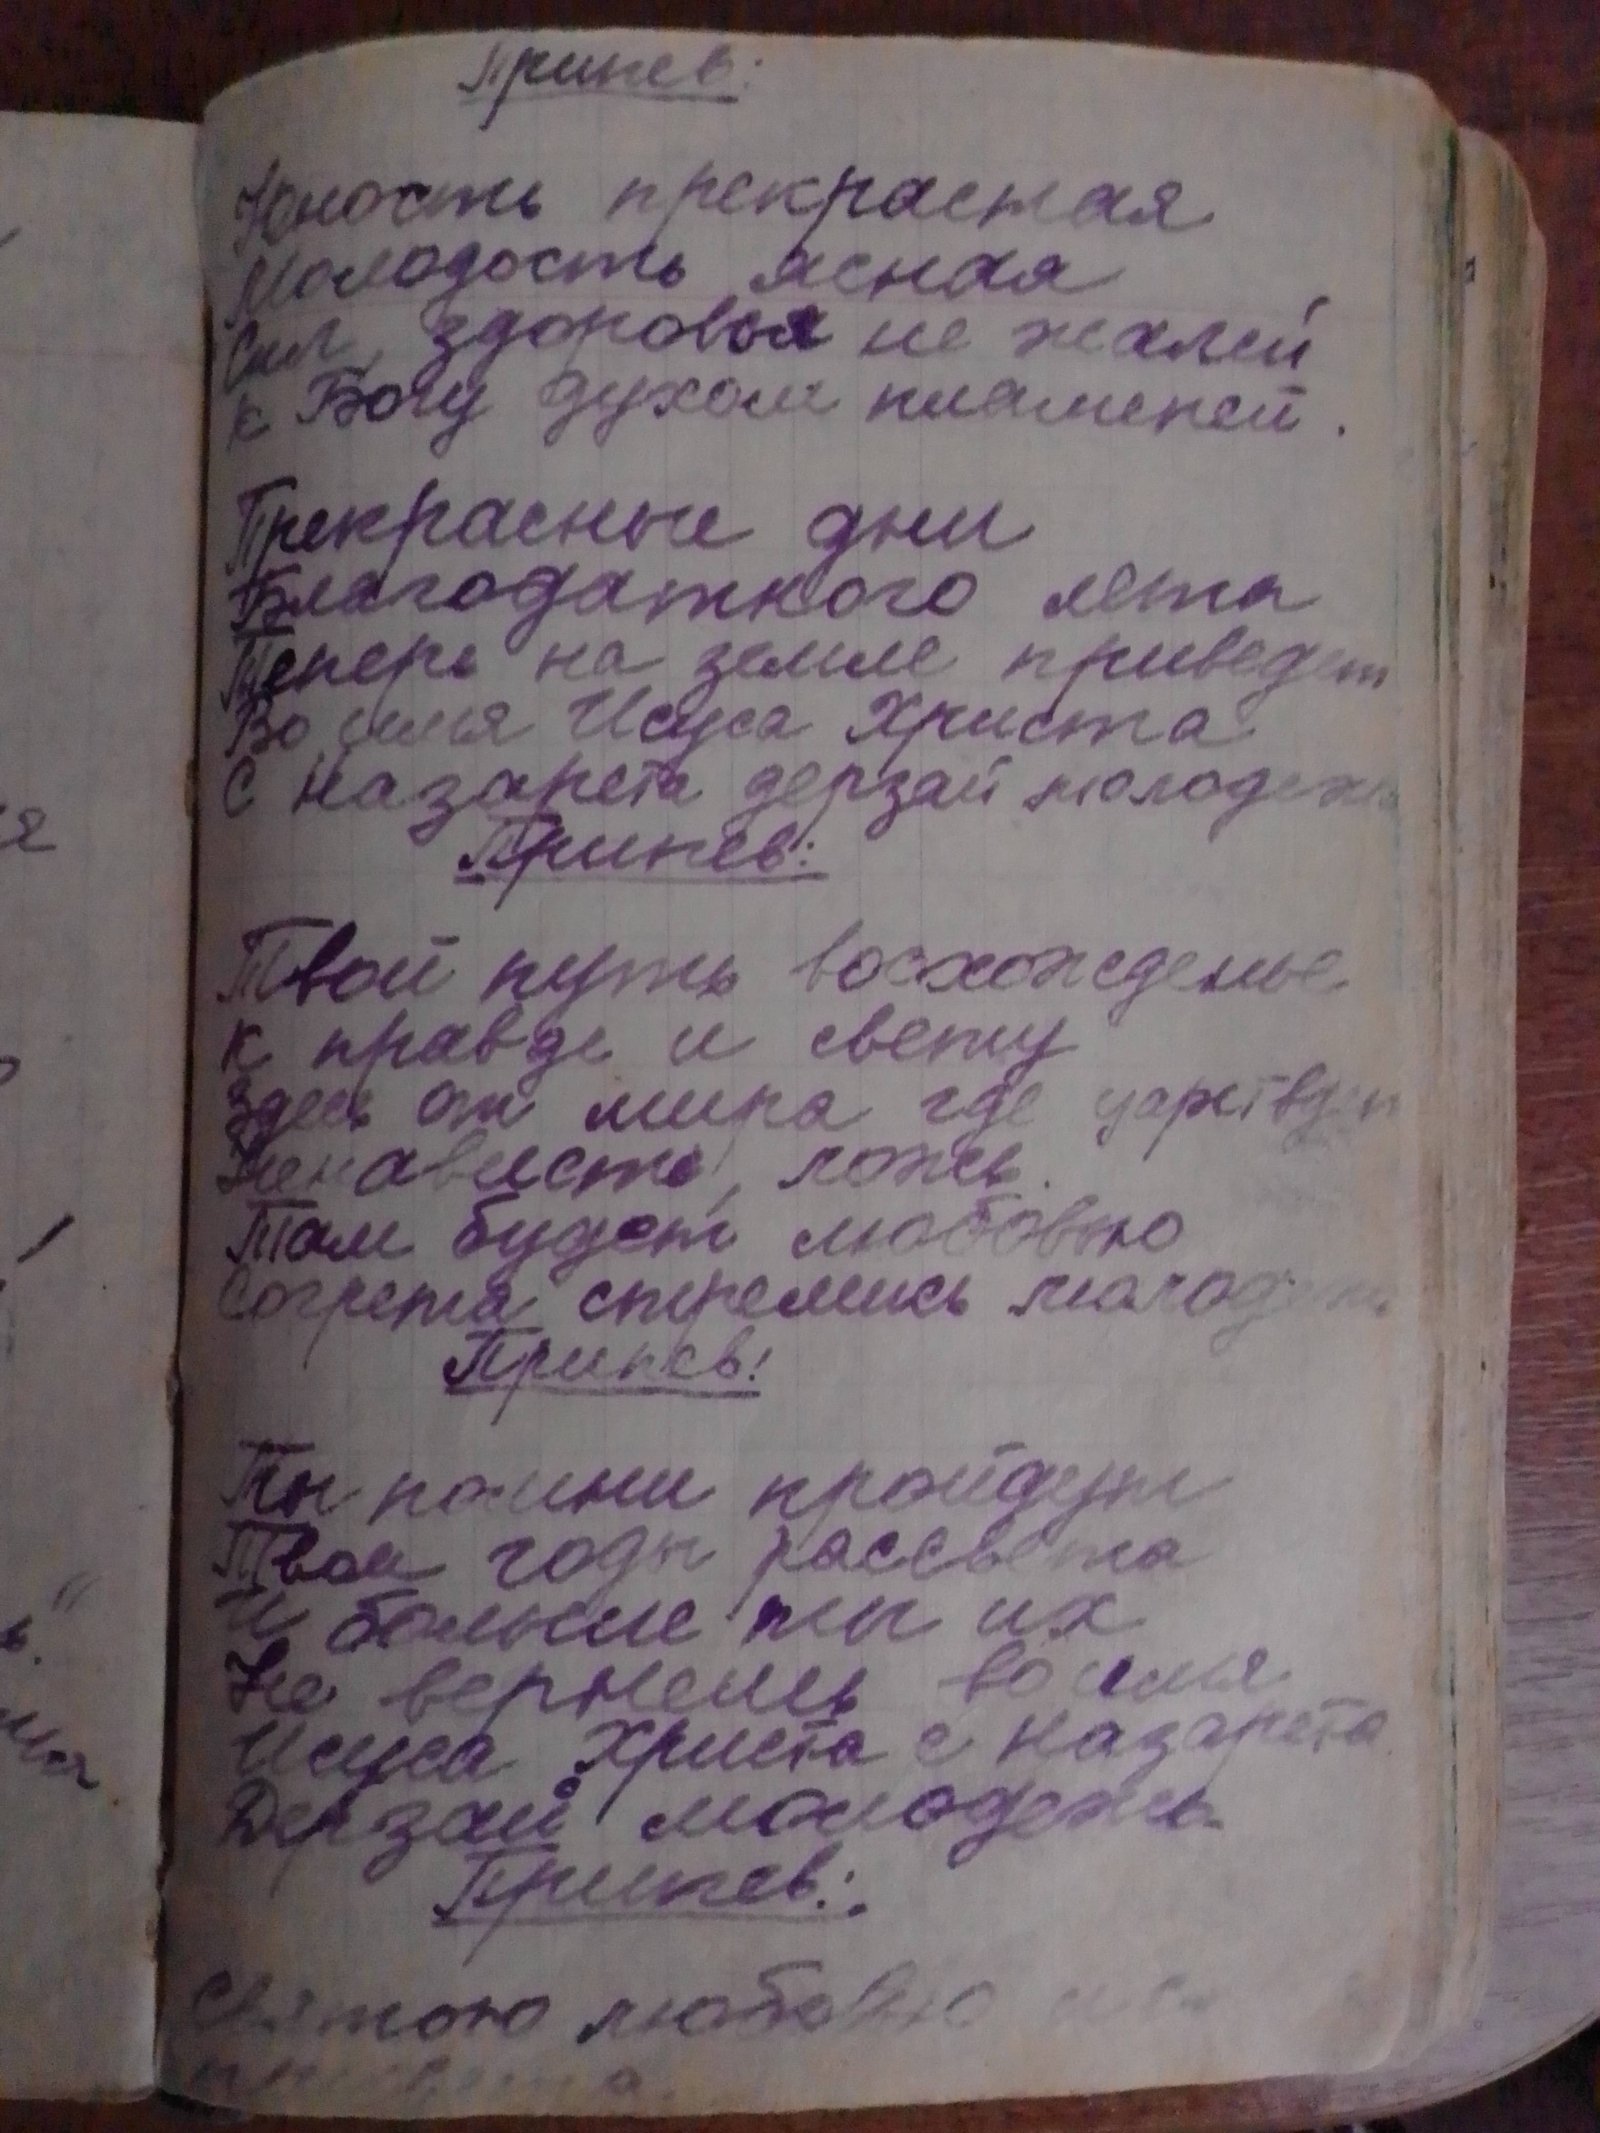 Припев:
Юность прекрасная
Молодость ясная
Сил, здоровья не жалей
К Богу духом пламеней.
Прекрасные дни
Благодатного лета
Теперь на земле приведет
Во имя Исуса Христа
С Назарета дерзай молодежь
Припев:
Твой путь восхожденье
К правде и свету
Здесь от мира где царствует
Ненависть, ложь.
Там будет любовью
Согрета стремись молодежь
Припев:
Ты помни пройдут
Твои годы рассвета
И больше ты их
Не вернешь во имя
Исуса Христа с Назарета
Дерзай молодежь
Припев:
Святою любовью